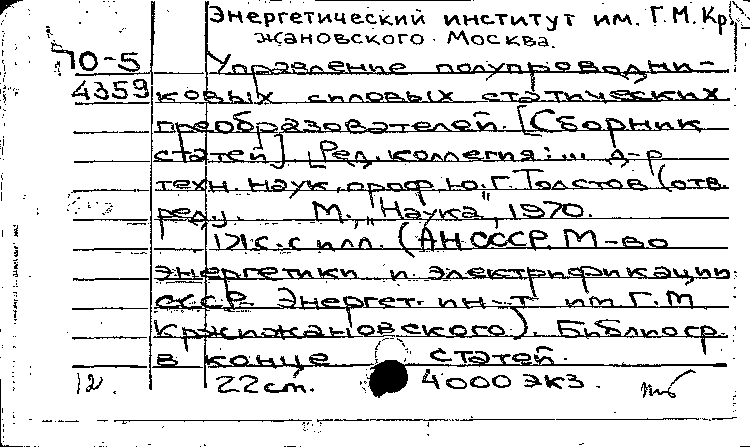 Энергетический институт им. Г.М. Кр
жановского. Москва.
70-5 Управление полупроводни-
4359 ковых силовых статических
преобразователей. [Сборник
статей]. [Ред. коллегия: ... д-р
техн. наук, проф. Ю.Г. Толстов (отв.
ред.). М., "Наука", 1970.
171 с. с илл. (АН СССР. М-во
энергетики и электрификации
СССР. Энергет. ин-т им. Г.М
Кржижановского). Библиогр.
в конце статей.
22 см. 4000 экз.